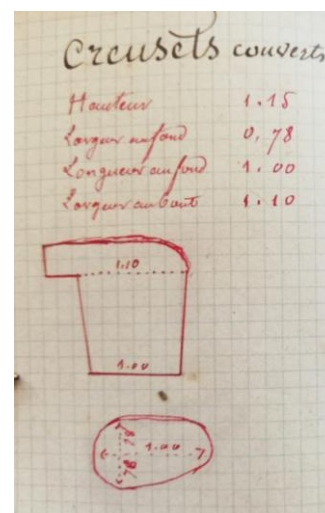 Creusets couverts
Hauteur 1.15
Largeur au fond 0,78
Longueur au fond 1.00
Largeur au bout 1.10
1.10
1.00
1.00
78
78